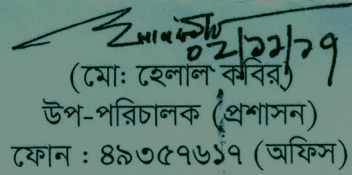 ০২/১১/১৭
(মো: হেলাল কবির)
উপ-পরিচালক (প্রশাসন)
ফোন : ৪৯৩৫৭৬১৭ (অফিস)